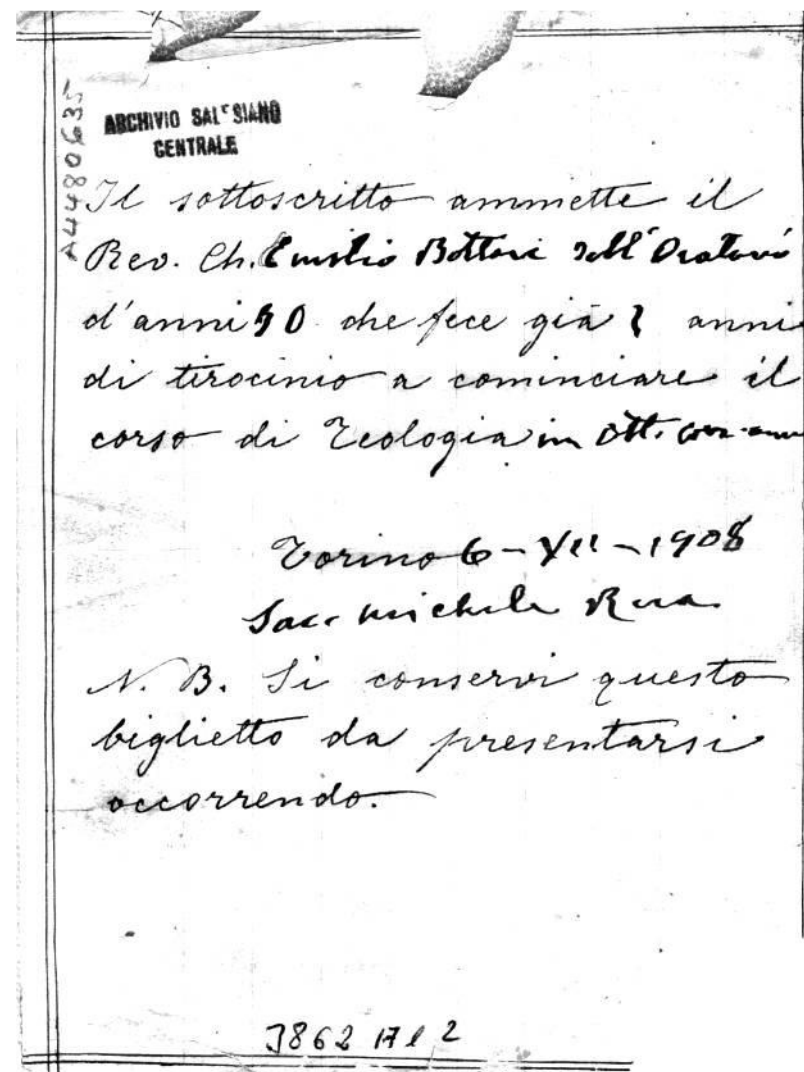 A4480635
ARCHIVIO SALESIANO
CENTRALE
Il sottoscritto ammette il
Rev. Ch. Emilio Bottari dell'Oratorio
d'anni 30 che fece già anni
di tirocinio a cominciare il
corso di Teologia in Ott.
Torino 6-XII-1908
Sac. Michele Rua
N. B. Si conservi questo
biglietto da presentarsi
occorrendo.
3862